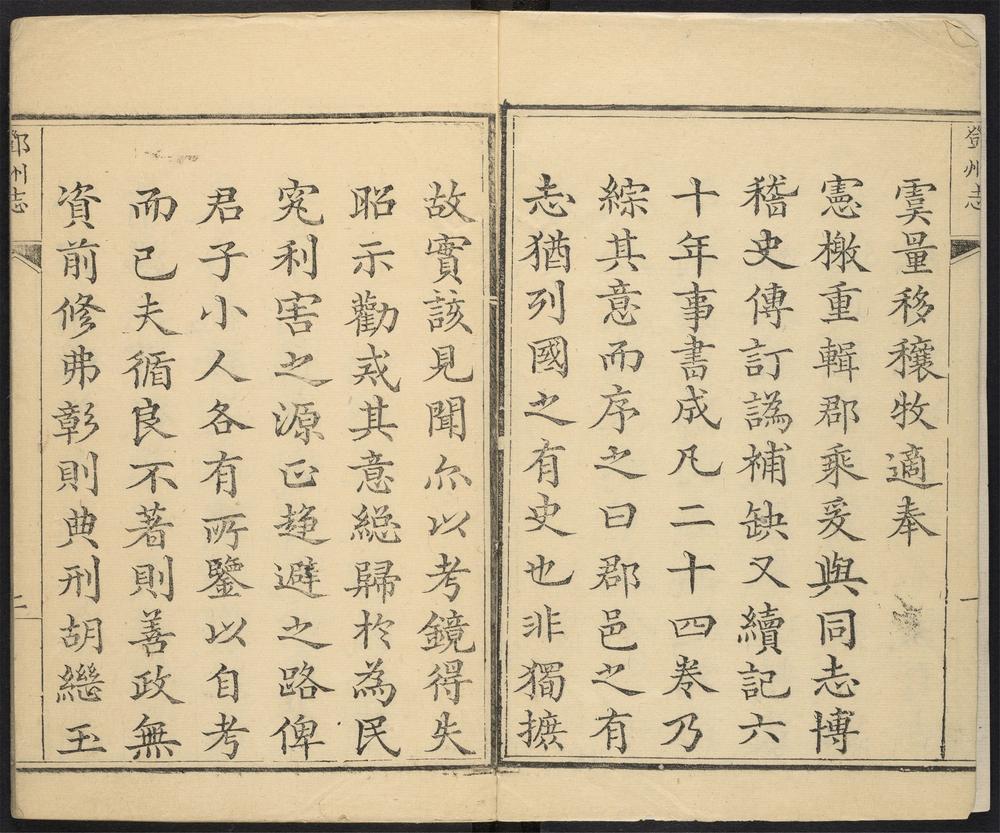 鄧州志
一
虞量移穰牧適奉
憲檄重輯郡乘爰與同志博
稽史傳訂譌補缺又續記六
十年事書成凡二十四卷乃
綜其意而序之曰郡邑之有
志猶列國之有史也非獨摭
故實該見聞尒以考鏡得失
昭示勸戒其意總歸於為民
究利害之源正趨避之路俾
君子小人各有所鑒以自考
而已夫循良不著則善政無
資前修弗彰則典刑胡繼玉
鄧州志
二